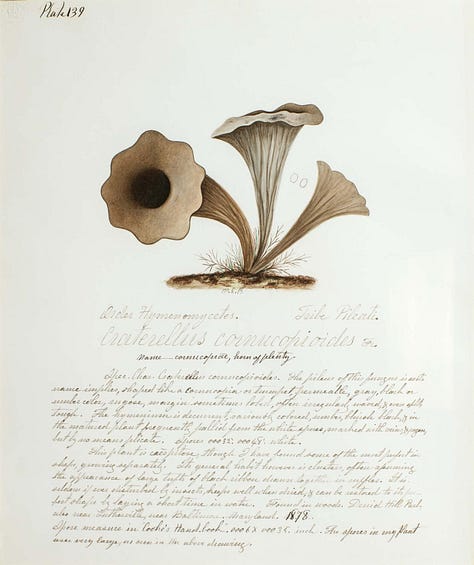 Plate 139
M.E.B.
Order Hymenomycetes. Tribe Pileati.
Craterellus cornucopioides Fr.
Name — cornucopiae, horn of plenty.
Spec. Char. Craterellus cornucopioides. The pileus of this fungus is as its
name implies, shaped like a cornucopia or trumpet, permeable, gray, black or
umber color, margin sometimes lobed, often irregularly waved, &
tough. The hymenium is decurrent, variously colored, umber, black in
the matured plant frequently pallid from the white spores, marked with veins &
but by no means plicate. Spores white.
This plant is caespitose, though I have found some of the most perfect in
shape, growing separately. Its general habit however is cluster, often assuming
the appearance of large tufts of black ribbon drawn together in ruffles. It is
seldom if ever disturbed by insects, keeps well when dried, & can be restored to its per-
fect shape by laying a short time in water. Found in woods. Druid Hill Park.
also near Lutherville, near Baltimore, Maryland. 1878.
Spore measure in Cooke's Handbook. inch. The spores in my plant
were very large, as seen in the above drawing.